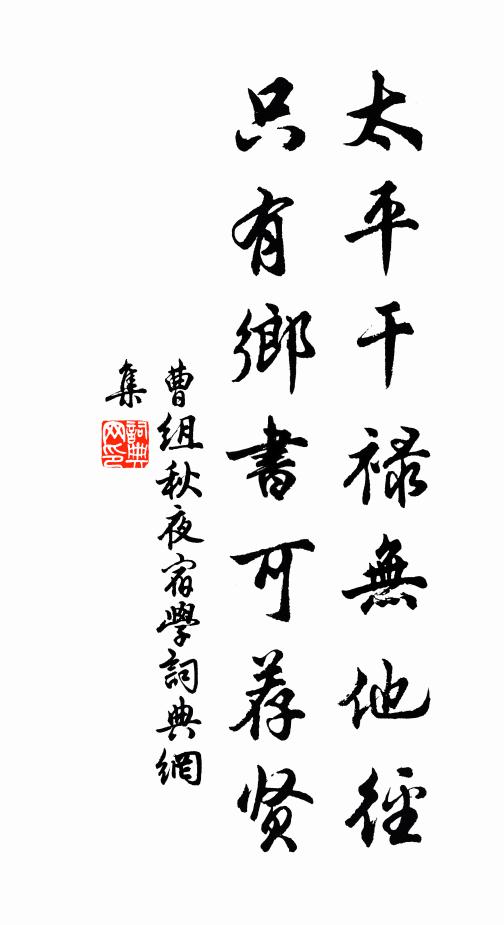 太平干禄無他徑
只有鄉書可荐贤
曹组秋夜宿學詞典網
集
詞典网印